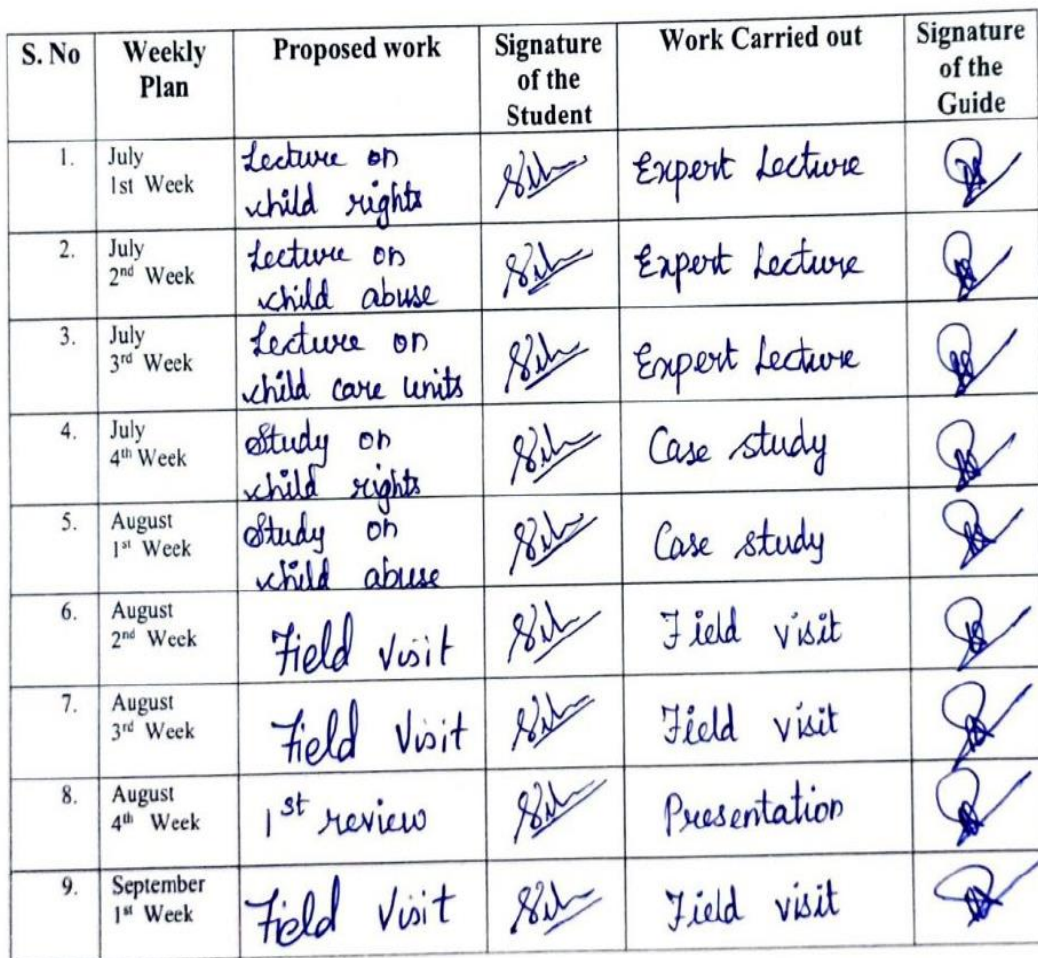 S. No Weekly Plan Proposed work Signature of the Student Work Carried out Signature of the Guide
1. July 1st Week Lecture on child rights Expert Lecture
2. July 2nd Week Lecture on child abuse Expert Lecture
3. July 3rd Week Lecture on child care units Expert Lecture
4. July 4th Week Study on child rights Case study
5. August 1st Week Study on child abuse Case study
6. August 2nd Week Field Visit Field visit
7. August 3rd Week Field Visit Field visit
8. August 4th Week 1st review Presentation
9. September 1st Week Field Visit Field visit